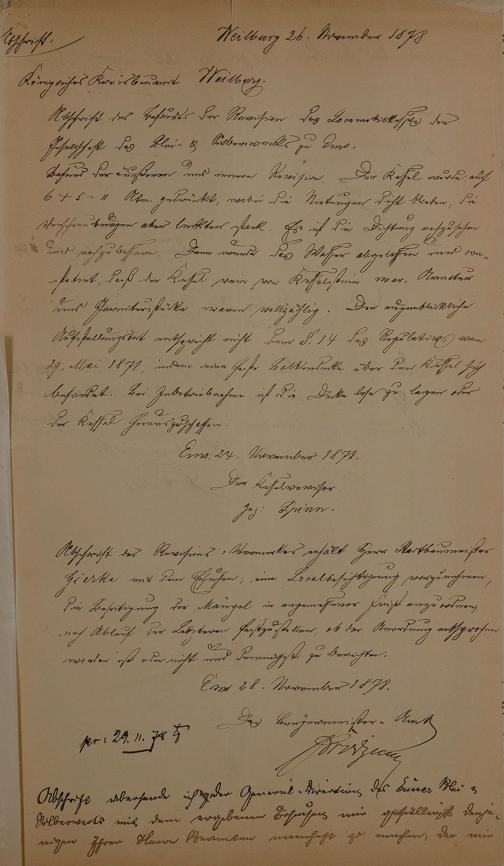 Abschrift.
Weilburg 26. November 1878
Königliches Kreisbauamt Weilburg.
Abschrift des Befunds der Revision des Locomobilkessels der
Gesellschaft des Blei- & Silberwerks zu Ems.
Befund der äußeren und inneren Revision. Der Kessel wurde auf
6 + 5 = 11 Atm. gedrückt, wobei die Nietungen dicht blieben, die
aber leckten stark. Es ist die Dichtung nachzusehen
und Dann wurde das Wasser abgelassen und con-
statirt, daß der Kessel rein von Kesselstein war. Armatur
und Garniturstücke waren vollzählig. Der augenblickliche
Aufstellungsort entspricht nicht dem § 14 des Regulativs vom
29. Mai 1871, indem eine feste Balkendecke über dem Kessel sich
befindet. Bei Inbetriebnahme ist die Decke lose zu legen oder
der Kessel herauszuschaffen.
Ems 24. November 1878.
Der Kesselrevisor
gez.
Abschrift des Revisions-Vermerkes erhält Herr Stadtbaumeister
mit dem Ersuchen, eine Localbesichtigung vorzunehmen,
die Beseitigung der Mängel in angemessener Frist anzuordnen,
nach Ablauf der Letzteren festzustellen, ob der Anordnung entsprochen
worden ist oder nicht und demnächst zu berichten.
Ems 28. November 1878.
Das Bürgermeister-Amt
pr. 29. 11. 78
Abschrift übersende ich der General-Direction des Emser Blei &
Silberwerks mit dem ergebenen Ersuchen mir gefälligst denje-
nigen Ihrer Herrn Beamten namhaft zu machen, der mir